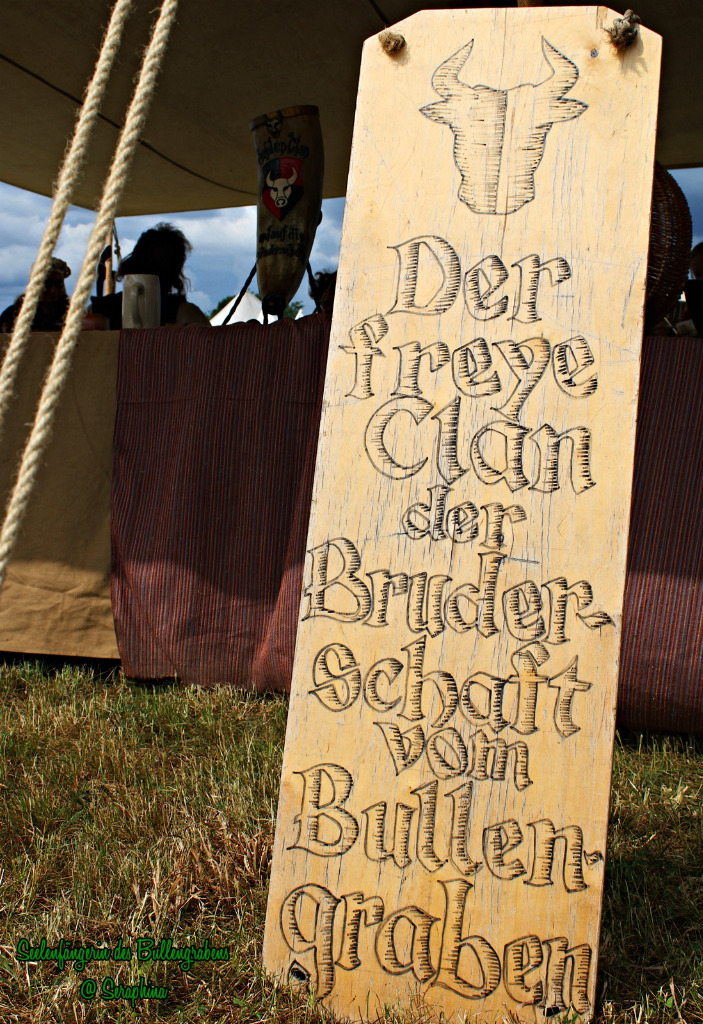 Der
freye
Clan
der
Bruder-
schaft
vom
Bullen-
graben
Seelenfängerin des Bullengrabens
@ Seraphina